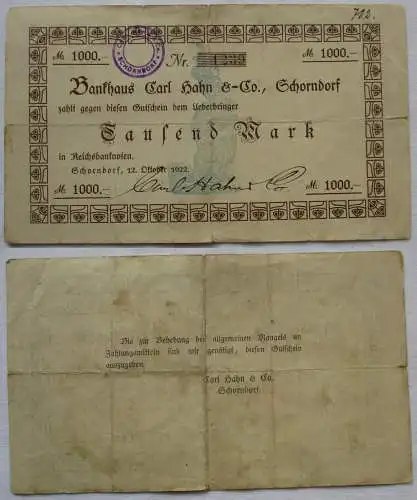 702.
M 1000.-
SCHORNDORF
Nr.
M 1000.-
Bankhaus Carl Hahn & Co., Schorndorf
zahlt gegen diesen Gutschein dem Ueberbringer
Tausend Mark
in Reichsbanknoten.
Schorndorf, 12. Oktober 1922.
M 1000.-
Carl Hahn & Co
M 1000.-
Bis zur Behebung des allgemeinen Mangels an
Zahlungsmitteln sind wir genötigt, diesen Gutschein
auszugeben.
Carl Hahn & Co.
Schorndorf.